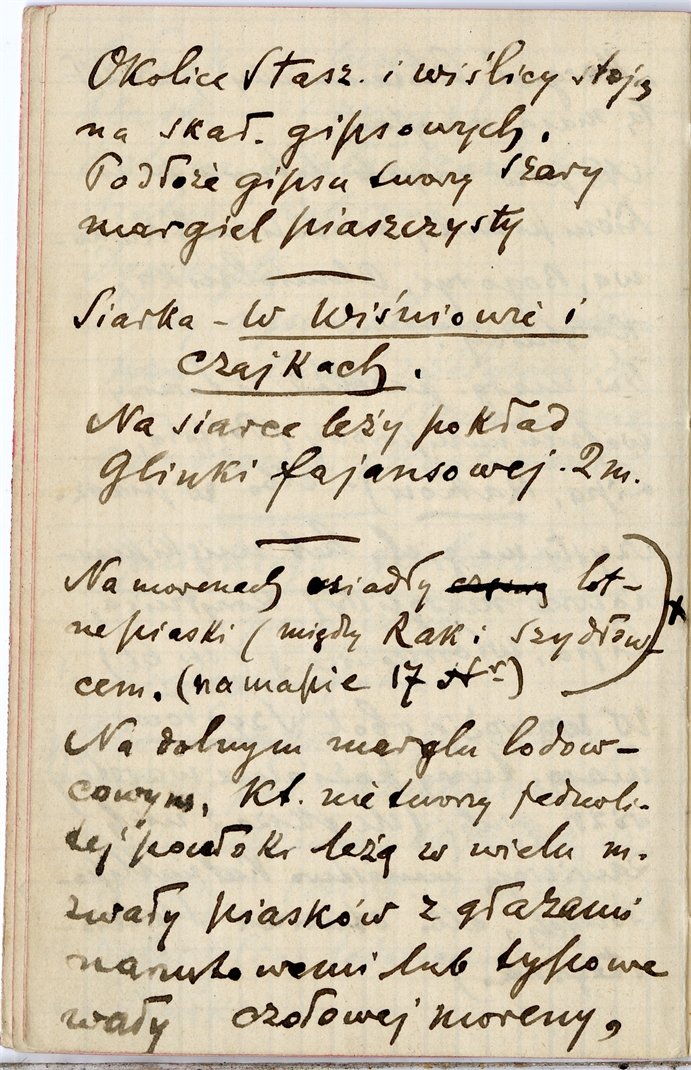 Okolice Stasz. i wiślicy stoją
na skał. gipsowych.
Podłoże gipsu tworzy szary
margiel piaszczysty
Siarka - w Wiśniówce i
czajkach.
Na siarce leży pokład
Glinki fajansowej. 2 m.
Na morenach osiadły lot-
ne piaski (między Rak i Szydłow-
cem. (na mapie 17 Nr)
Na dolnym marglu lodow-
cowym, kt. nie tworzy jednoli-
tej powłoki leżą w wielu m.
zwały piasków z głazami
narzutowemi lub typowe
wały czołowej moreny,